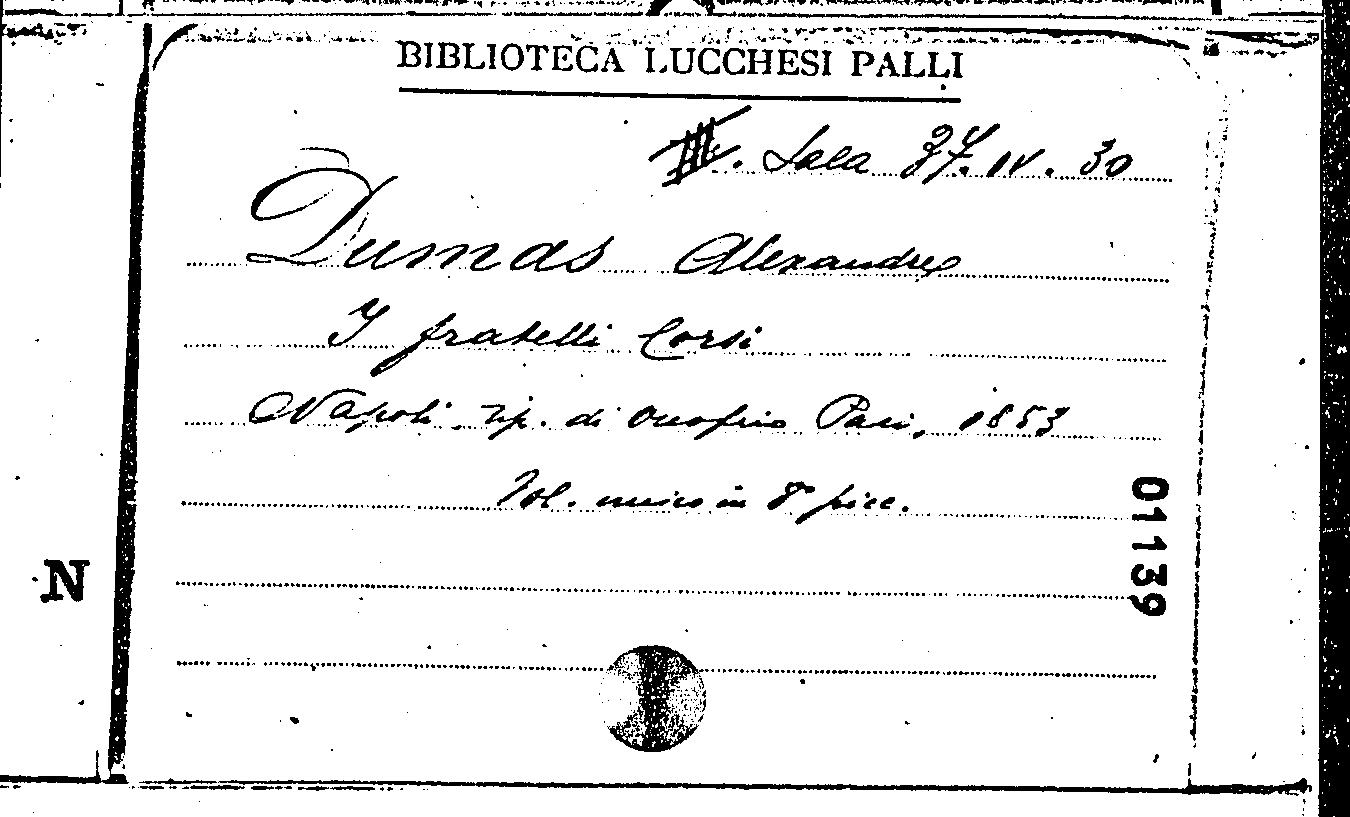 BIBLIOTECA LUCCHESI PALLI
Sala 37. IV. 30
Dumas Alexandre
I fratelli Corsi
Napoli, tip. di Onofrio Pasi, 1853
Vol. unico in 8° picc.
01139
N